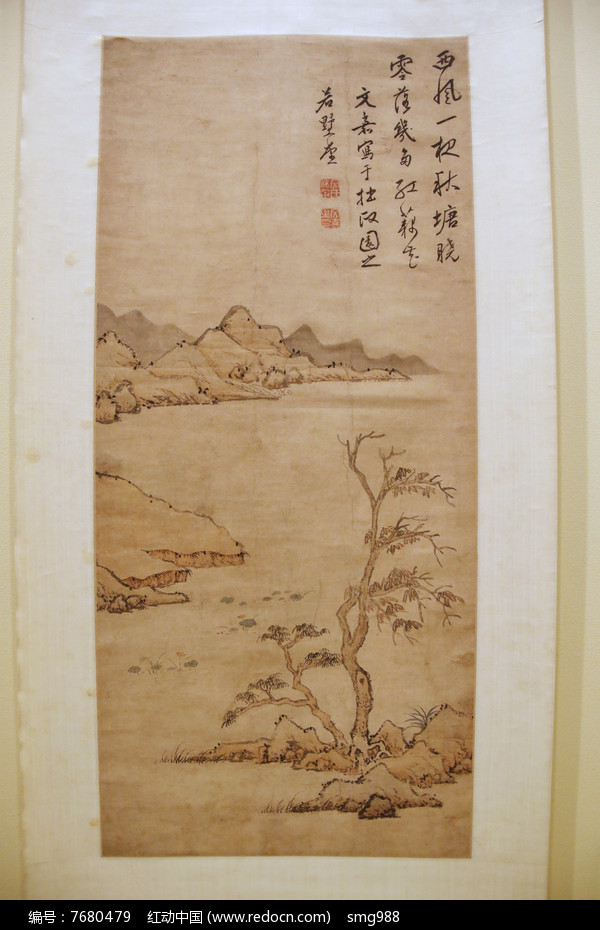 西風一夜秋塘曉
零落幾多紅藕花
文嘉寫于拙政園之
若墅堂
编号：7680479 红动中国 (www.redocn.com) smg988